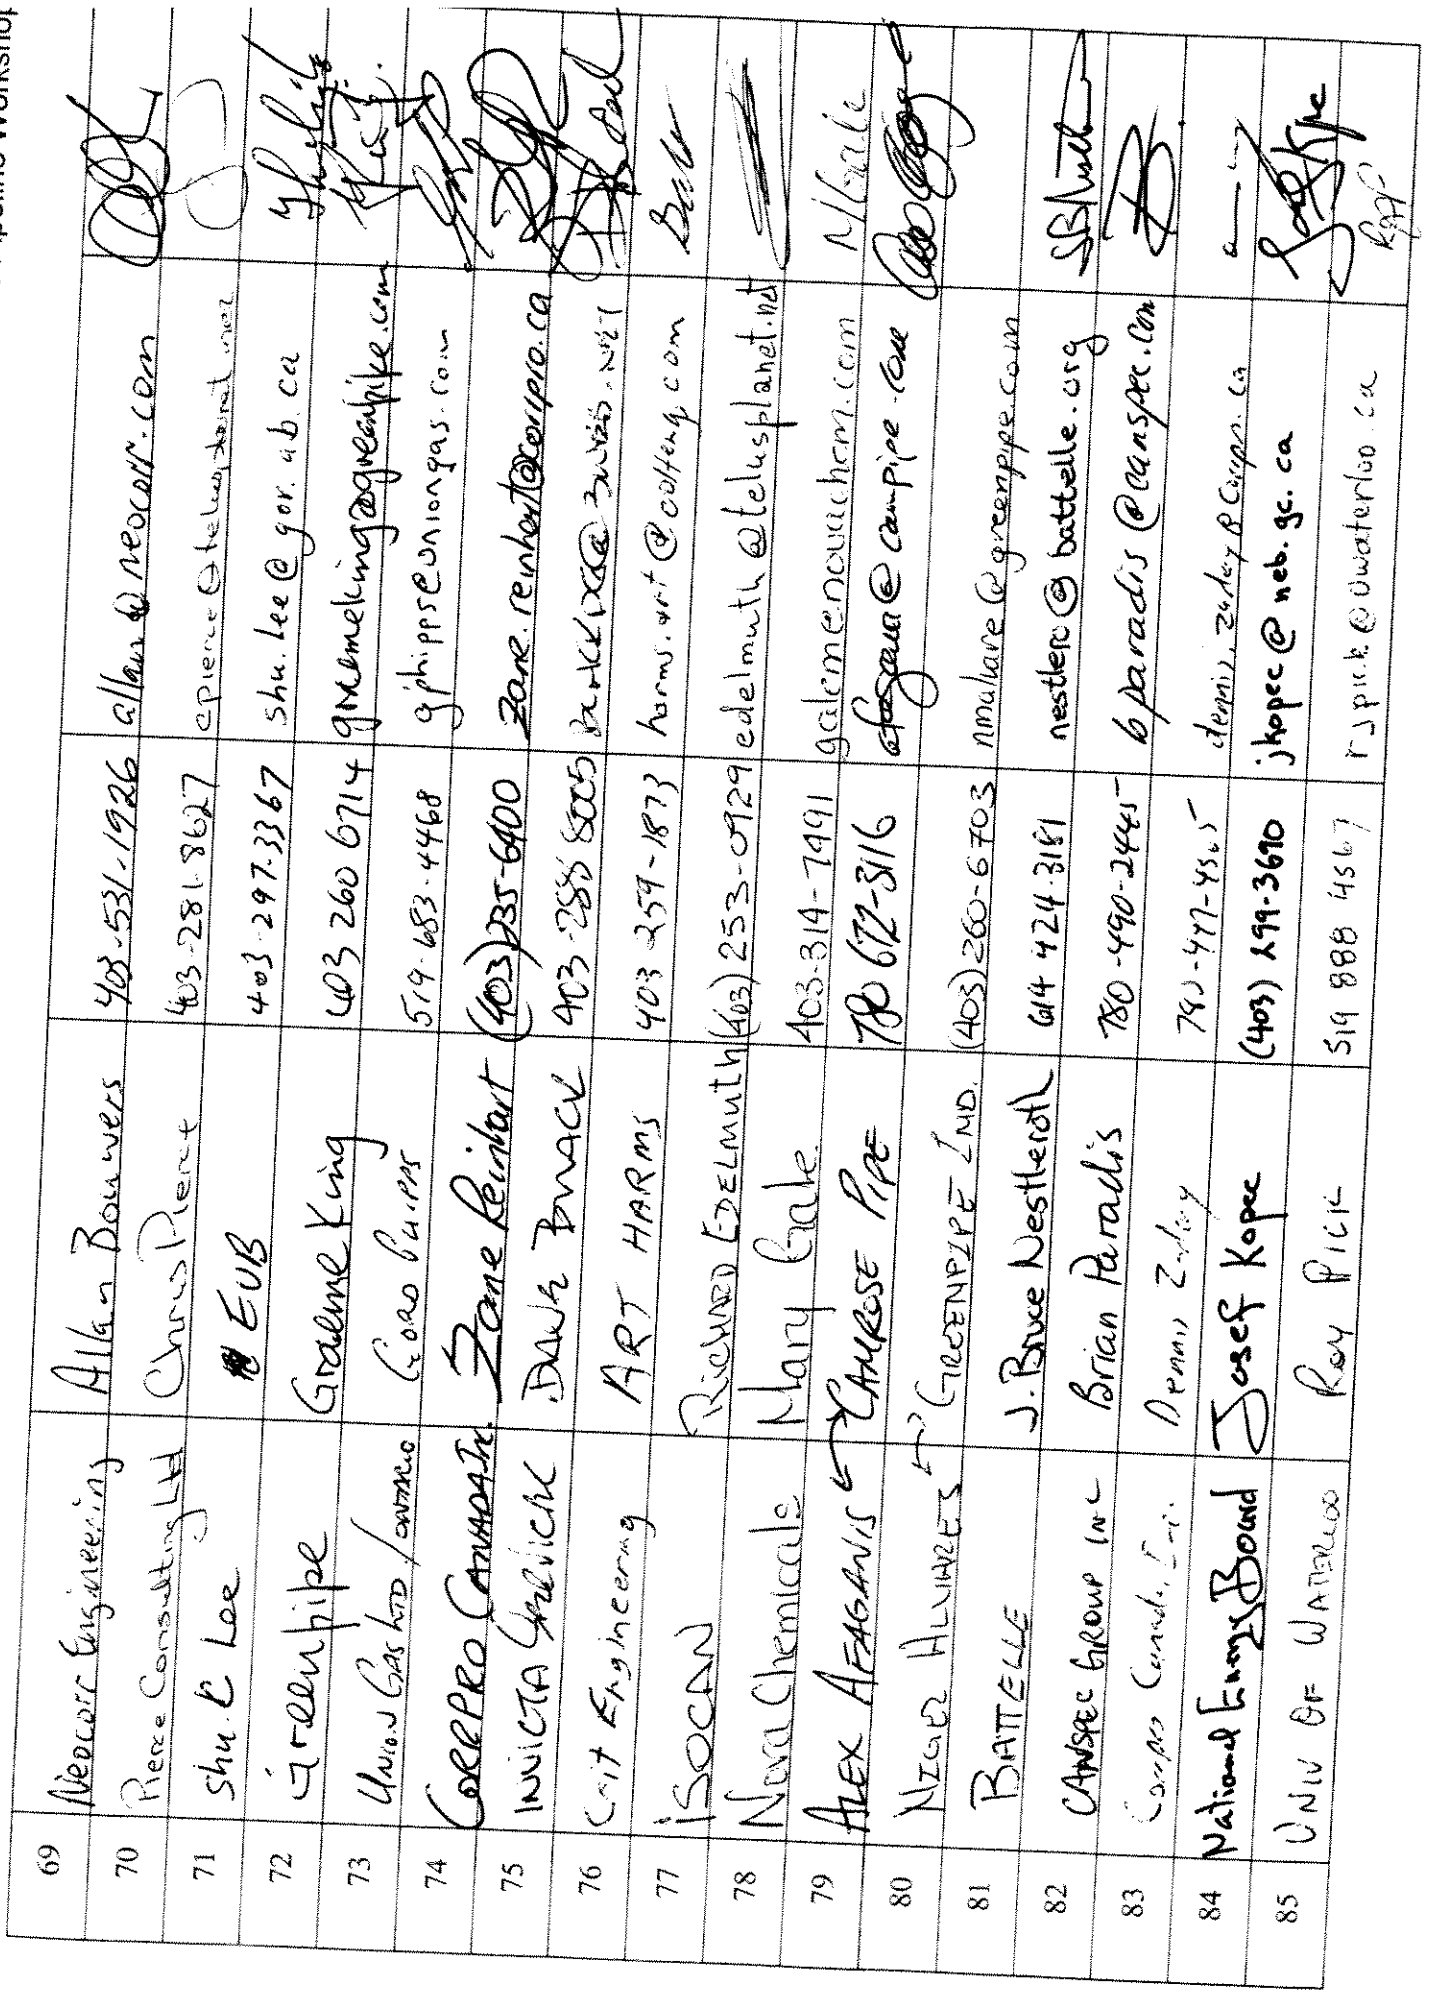 Pipeline Workshop
69 Neocorr Engineering Allan Bouwers 403-531-1926 allan@neocorr.com
70 Pierce Consulting Ltd Chris Pierce 403-281-8627 cpierce@telusplanet.net
71 Shu K Lee EUB 403-297-3367 shu.lee@gov.ab.ca
72 Greenpipe Graeme King 403 260 6714 graemeking@greenpipe.com
73 Union Gas LTD / ONTARIO GORD PHIPPS 519-683-4468 gphipps@uniongas.com
74 CORRPRO CANADA Inc. Zane Reinhart (403)235-6400 zane.reinhart@corrpro.ca
75 INVICTA 403-285 8005
76 Colt Engineering ART HARMS 403-259-1873 harms.art@colteng.com
77 ISOCAN RICHARD EDELMUTH (403)253-0929 edelmuth@telusplanet.net
78 Nova Chemicals Mary Gale 403-314-7491 galem@novachem.com
79 ALEX AFAGANIS CAMROSE PIPE 780 672-3116 afaganis@campipe.com
80 NIGEL ALVARES GREENPIPE IND. (403)260-6703 nmalvare@greenpipe.com
81 BATTELLE J. Bruce Nestleroth 614 424-3181 nestlero@battelle.org
82 CANSPEC GROUP INC Brian Paradis 780-490-2445 bparadis@canspec.com
83 Dennis Zadery 780-447-4565
84 National Energy Board Josef Kopec (403) 299-3690 jkopec@neb.gc.ca
85 UNIV OF WATERLOO Roy PICK 519 888 4567 rjpick@uwaterloo.ca